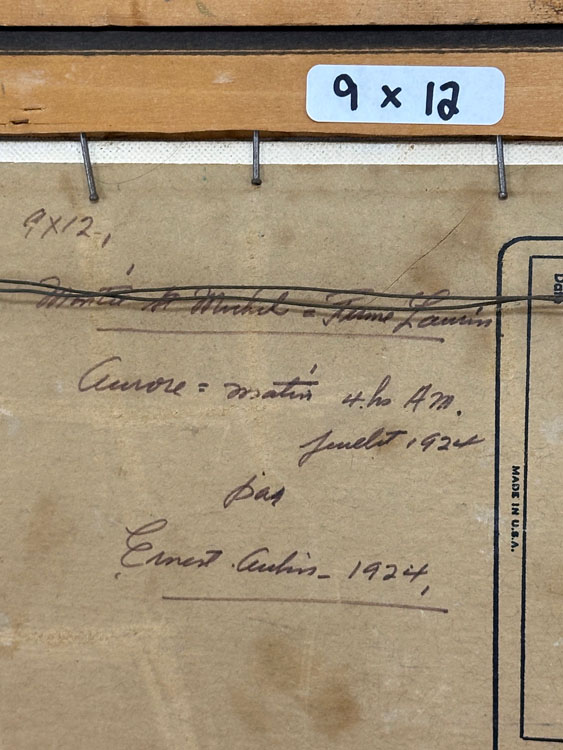 9 x 12
9 x 12,
Montée St Michel = Ferme Laurin
Aurore = matin 4.hs A.M.
juillet 1924
par
Ernest Aubin - 1924,
MADE IN U.S.A.